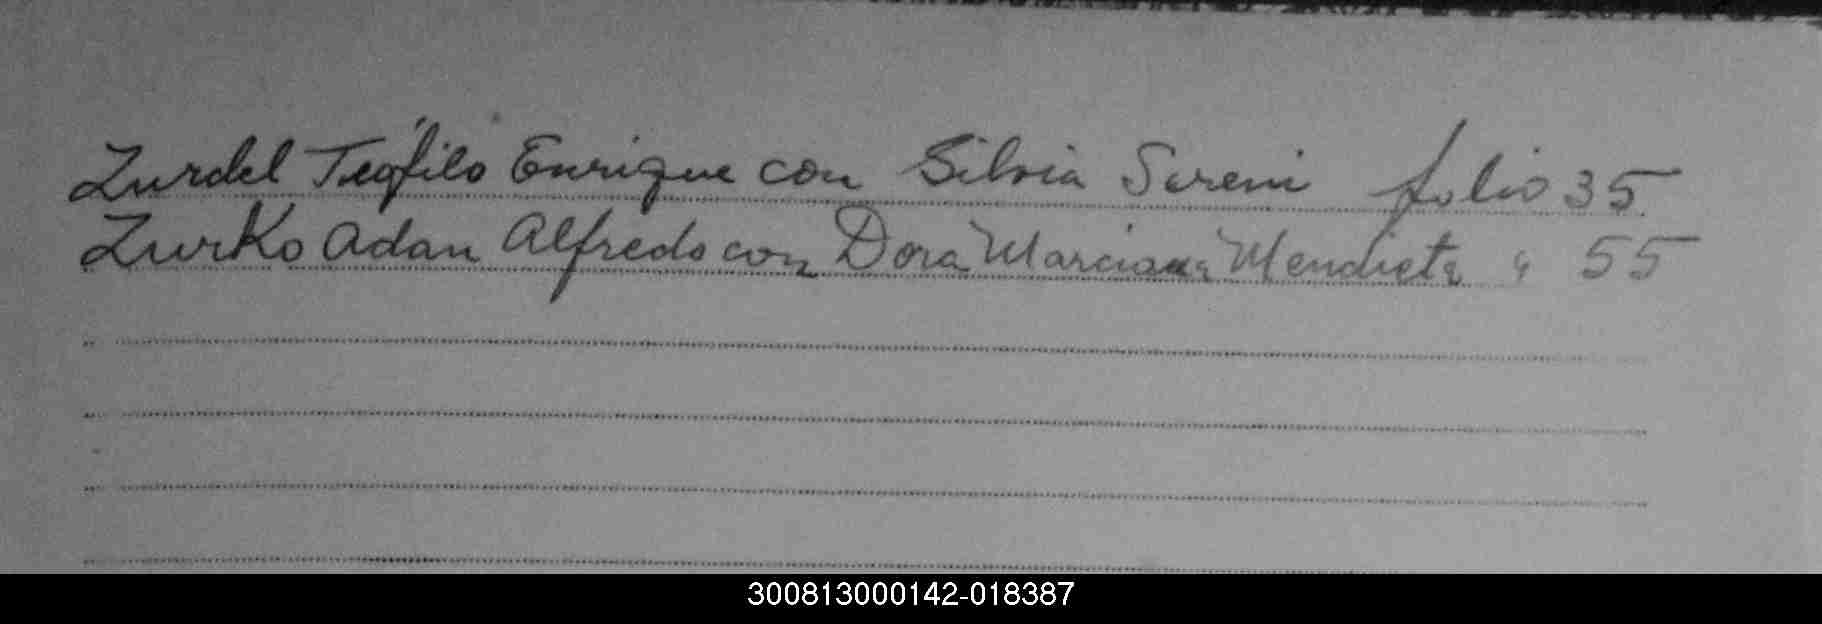 Zurdel Teófilo Enrique con Silvia Sereni folio 35
Zurko Adan Alfredo con Dora Marciana Mendieta " 55
300813000142-018387